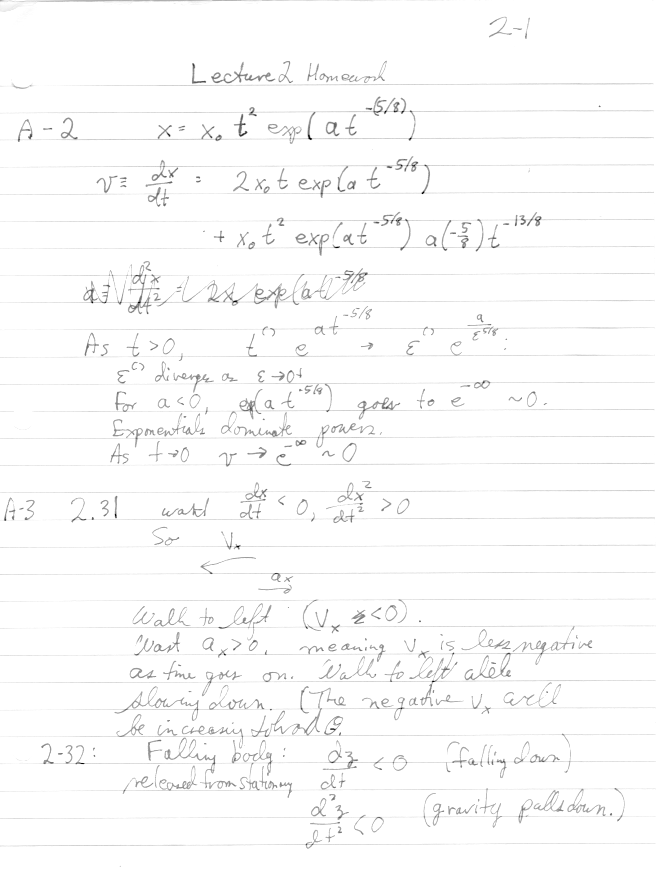 2-1
Lecture 2 Homework
A-2 x = x₀ t² exp(a t^-(5/8))
v ≡ dx/dt = 2x₀ t exp(a t^-5/8)
+ x₀ t² exp(at^-5/8) a(-5/8) t^-13/8
d²x/dt² = 2x₀ exp(at^-5/8
As t>0, t^() e^at^-5/8 → ε^() e^a/ε^5/8 :
ε^() diverges as ε→0+
For a<0, exp(a t^-5/8) goes to e^-∞ ~0.
Exponentials dominate powers.
As t→0 v → e^-∞ ~ 0
A-3 2.31 want dx/dt < 0, dx²/dt² > 0
So Vx
←
ax
→
Walk to left (Vx <0).
Want ax>0, meaning Vx is less negative
as time goes on. Walk to left while
slowing down. (The negative Vx will
be increasing toward 0.
2-32: Falling body: dz/dt < 0 (falling down)
released from stationary
d²z/dt² < 0 (gravity pulls down.)